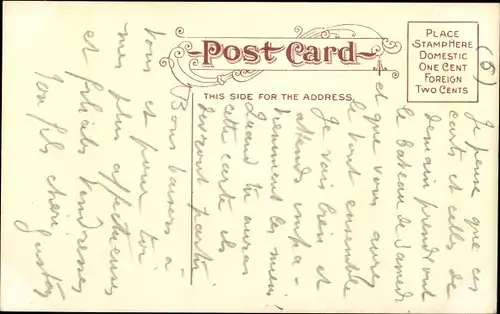 POST CARD
THIS SIDE FOR THE ADDRESS.
PLACE
STAMP HERE
DOMESTIC
ONE CENT
FOREIGN
TWO CENTS
(5)
Je pense que ces
carts et celles de
demain prendront
le bateau de Samedi
et que vous aurez
le tout ensemble
Je vais bien et
attends impa-
tiemment les miens!
Quand tu auras
cette carte ils
devront partir
Bons baisers à
tous et pour toi
mes plus affectueuses
et filiales tendresses
Ton fils chéri
Gustav